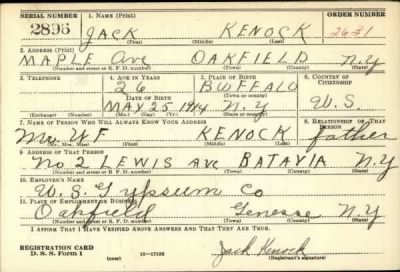 SERIAL NUMBER 1. NAME (Print) ORDER NUMBER
2896 JACK KENOCK 2631
(First) (Middle) (Last)
2. ADDRESS (Print)
MAPLE Ave OAKFIELD N.Y
(Number and street or R. F. D. number) (Town) (County) (State)
3. TELEPHONE 4. AGE IN YEARS 5. PLACE OF BIRTH 6. COUNTRY OF CITIZENSHIP
26 BUFFALO
DATE OF BIRTH (Town or county)
MAY 25 1914 N.Y U.S.
(Exchange) (Number) (Mo.) (Day) (Yr.) (State or country)
7. NAME OF PERSON WHO WILL ALWAYS KNOW YOUR ADDRESS 8. RELATIONSHIP OF THAT PERSON
Mr. W F KENOCK father
(Mr., Mrs., Miss) (First) (Middle) (Last)
9. ADDRESS OF THAT PERSON
No 2 LEWIS Ave BATAVIA N.Y
(Number and street or R. F. D. number) (Town) (County) (State)
10. EMPLOYER'S NAME
U.S. Gypsum Co
11. PLACE OF EMPLOYMENT OR BUSINESS
Oakfield Genesse N.Y
(Number and street or R. F. D. number) (Town) (County) (State)
I AFFIRM THAT I HAVE VERIFIED ABOVE ANSWERS AND THAT THEY ARE TRUE.
REGISTRATION CARD
D. S. S. Form 1 (over) Jack Kenock
(Registrant's signature)